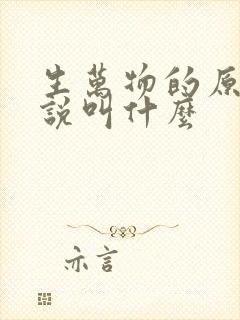 生萬物的原
說叫什麼
亦言